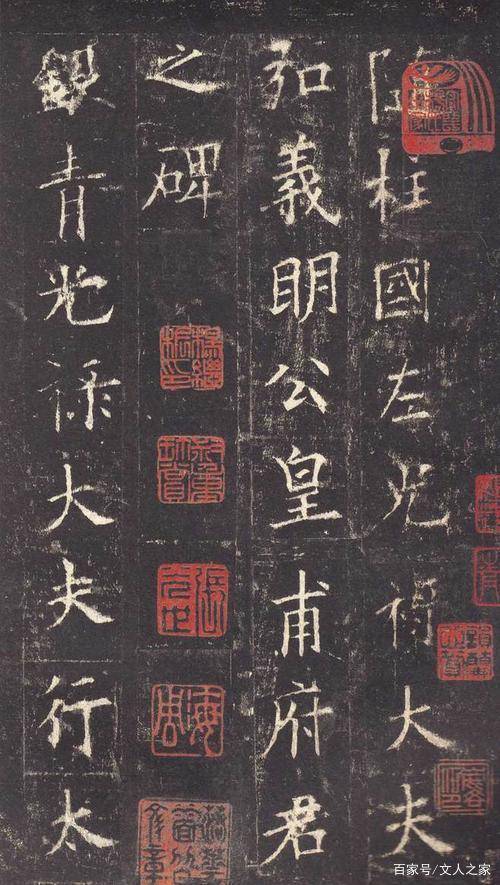 隋柱國左光祿大夫
弘義明公皇甫府君
之碑
銀青光祿大夫行太
百家号/文人之家